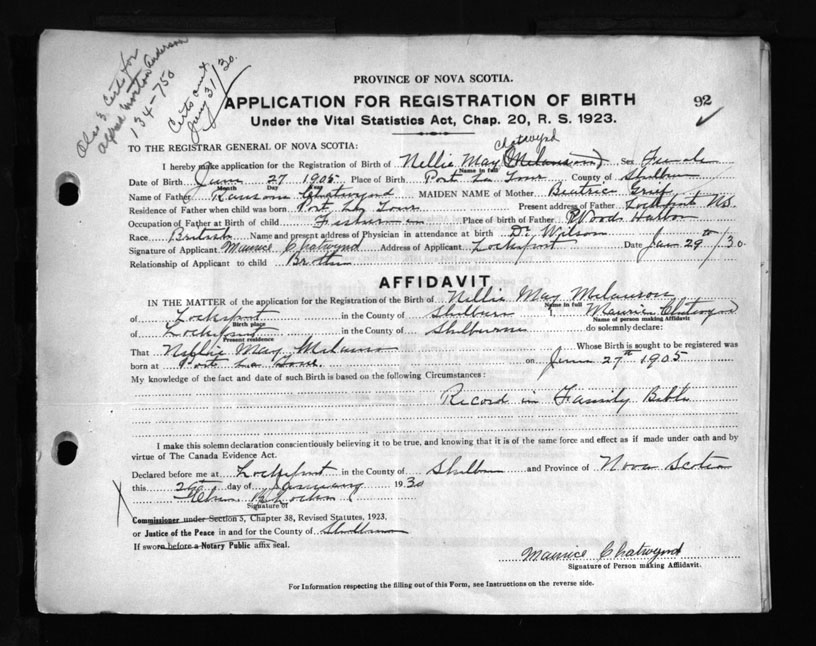 Also 3 Certs for
Alfred Morton Anderson
134-750
Certs cut
Jany 31/30.
PROVINCE OF NOVA SCOTIA.
APPLICATION FOR REGISTRATION OF BIRTH
92
Under the Vital Statistics Act, Chap. 20, R. S. 1923.
TO THE REGISTRAR GENERAL OF NOVA SCOTIA:
Chatwynd
I hereby make application for the Registration of Birth of Nellie May (Melanson) Sex Female
Name in full
Date of Birth June 27 1905 Place of Birth Port La Tour County of Shelburne
Month Day Year
Name of Father Ransom Chatwynd MAIDEN NAME of Mother Beatrice
Residence of Father when child was born Port La Tour Present address of Father Lockeport N.S.
Occupation of Father at Birth of child Fisherman Place of birth of Father Woods Harbor
Race British Name and present address of Physician in attendance at birth Dr. Wilson
Signature of Applicant Maurice Chatwynd Address of Applicant Lockeport Date Jan 29th/30.
Relationship of Applicant to child Brother
AFFIDAVIT
IN THE MATTER of the application for the Registration of the Birth of Nellie May Melanson
Name in full
of Lockeport in the County of Shelburn Maurice Chatwynd
Birth place Name of person making Affidavit
of Lockeport in the County of Shelburne do solemnly declare:
Present residence
That Nellie May Melanson Whose Birth is sought to be registered was
born at Port La Tour on June 27th 1905
My knowledge of the fact and date of such Birth is based on the following Circumstances:
Record in Family Bible
I make this solemn declaration conscientiously believing it to be true, and knowing that it is of the same force and effect as if made under oath and by
virtue of The Canada Evidence Act.
Declared before me at Lockeport in the County of Shelburne and Province of Nova Scotia
this 29th day of January 1930
Signature of
Commissioner under Section 5, Chapter 38, Revised Statutes, 1923,
or Justice of the Peace in and for the County of Shelburne
If sworn before a Notary Public affix seal.
Maurice Chatwynd
Signature of Person making Affidavit.
For Information respecting the filling out of this Form, see Instructions on the reverse side.